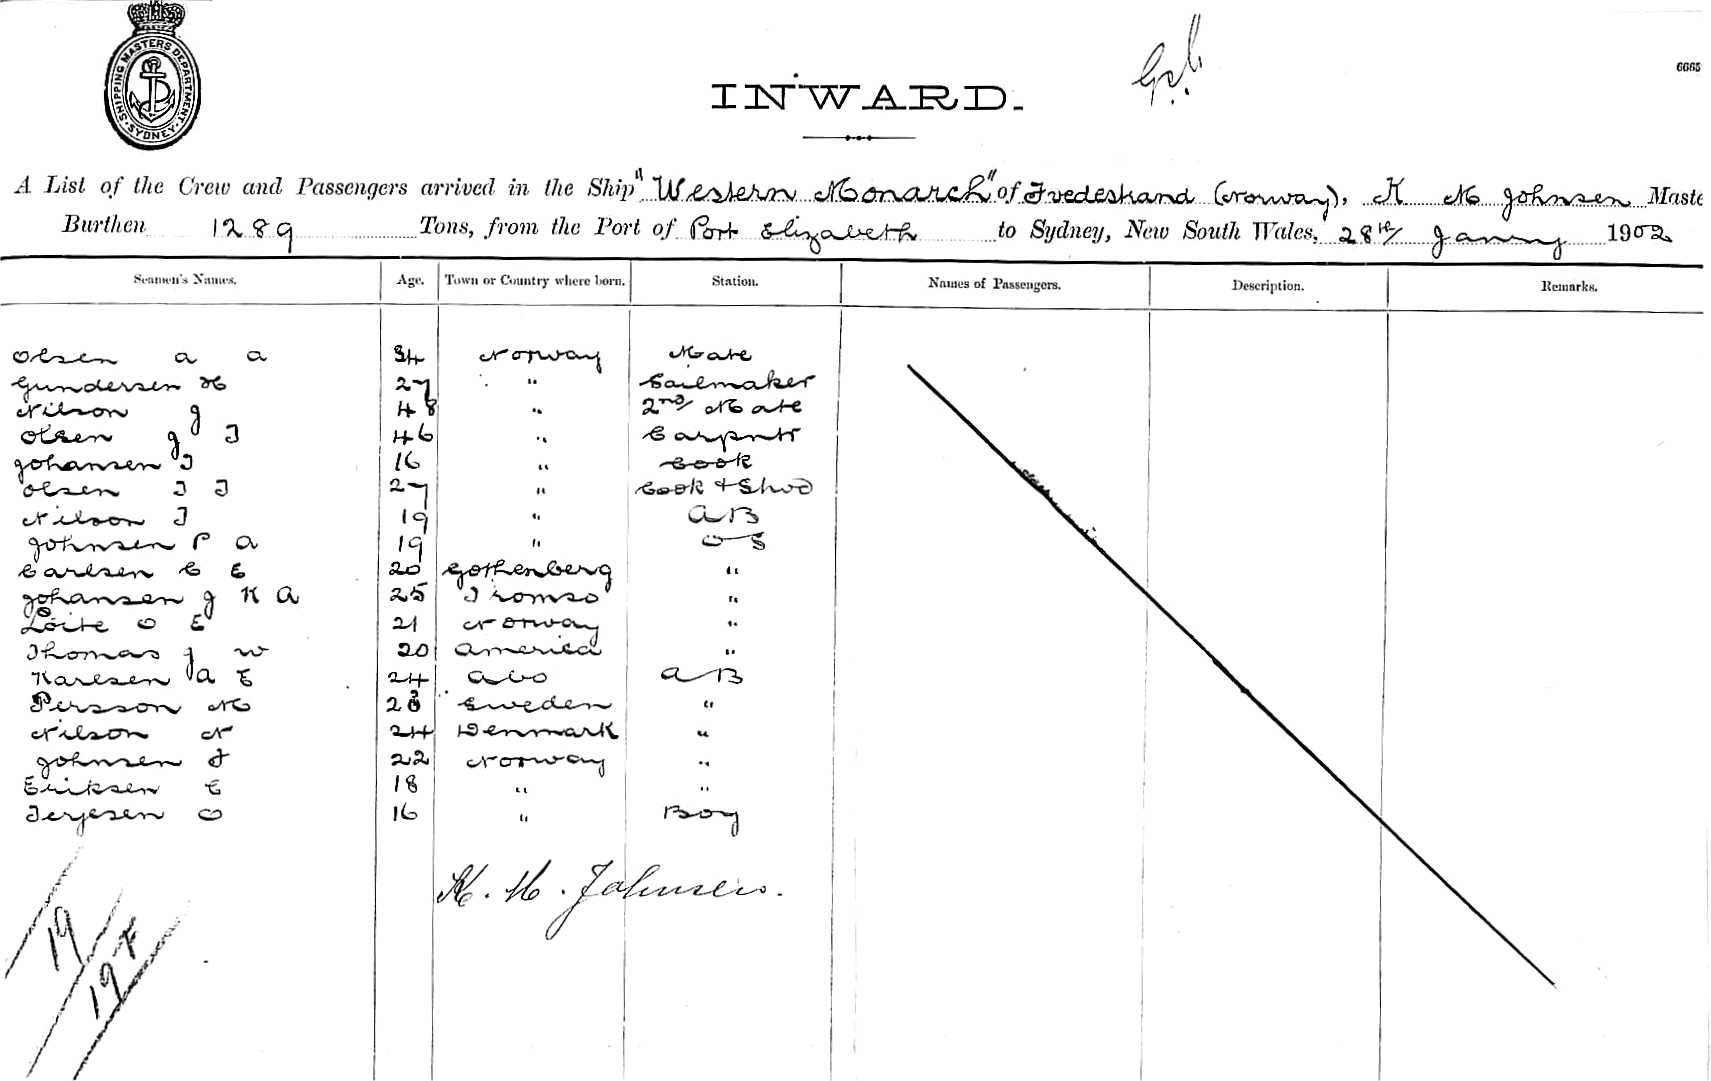 SHIPPING MASTERS DEPARTMENT · SYDNEY ·
6665
INWARD.
A List of the Crew and Passengers arrived in the Ship "Western Monarch" of Tvedestrand (Norway), K M Johnsen Maste
Burthen 1289 Tons, from the Port of Port Elizabeth to Sydney, New South Wales, 28th Janry 1902
Seamen's Names. Age. Town or Country where born. Station. Names of Passengers. Description. Remarks.
Olsen A A 34 Norway Mate
Gundersen H 27 " Sailmaker
Nilson J 48 " 2nd/ Mate
Olsen J T 46 " Carpntr
Johansen T 16 " Cook
Olsen T T 27 " Cook + Stwd
Nilson T 19 " AB
Johnsen P A 19 " OS
Carlsen C E 20 Gothenberg "
Johansen J K A 25 Tromso "
Löite O E 21 Norway "
Thomas J W 20 America "
Karlsen A E 24 Abo AB
Persson M Sweden "
Nilson N 24 Denmark "
Johnsen F 22 Norway "
Eriksen E 18 " "
Terjesen O 16 " Boy
K. M. Johnsen.
19
19 F